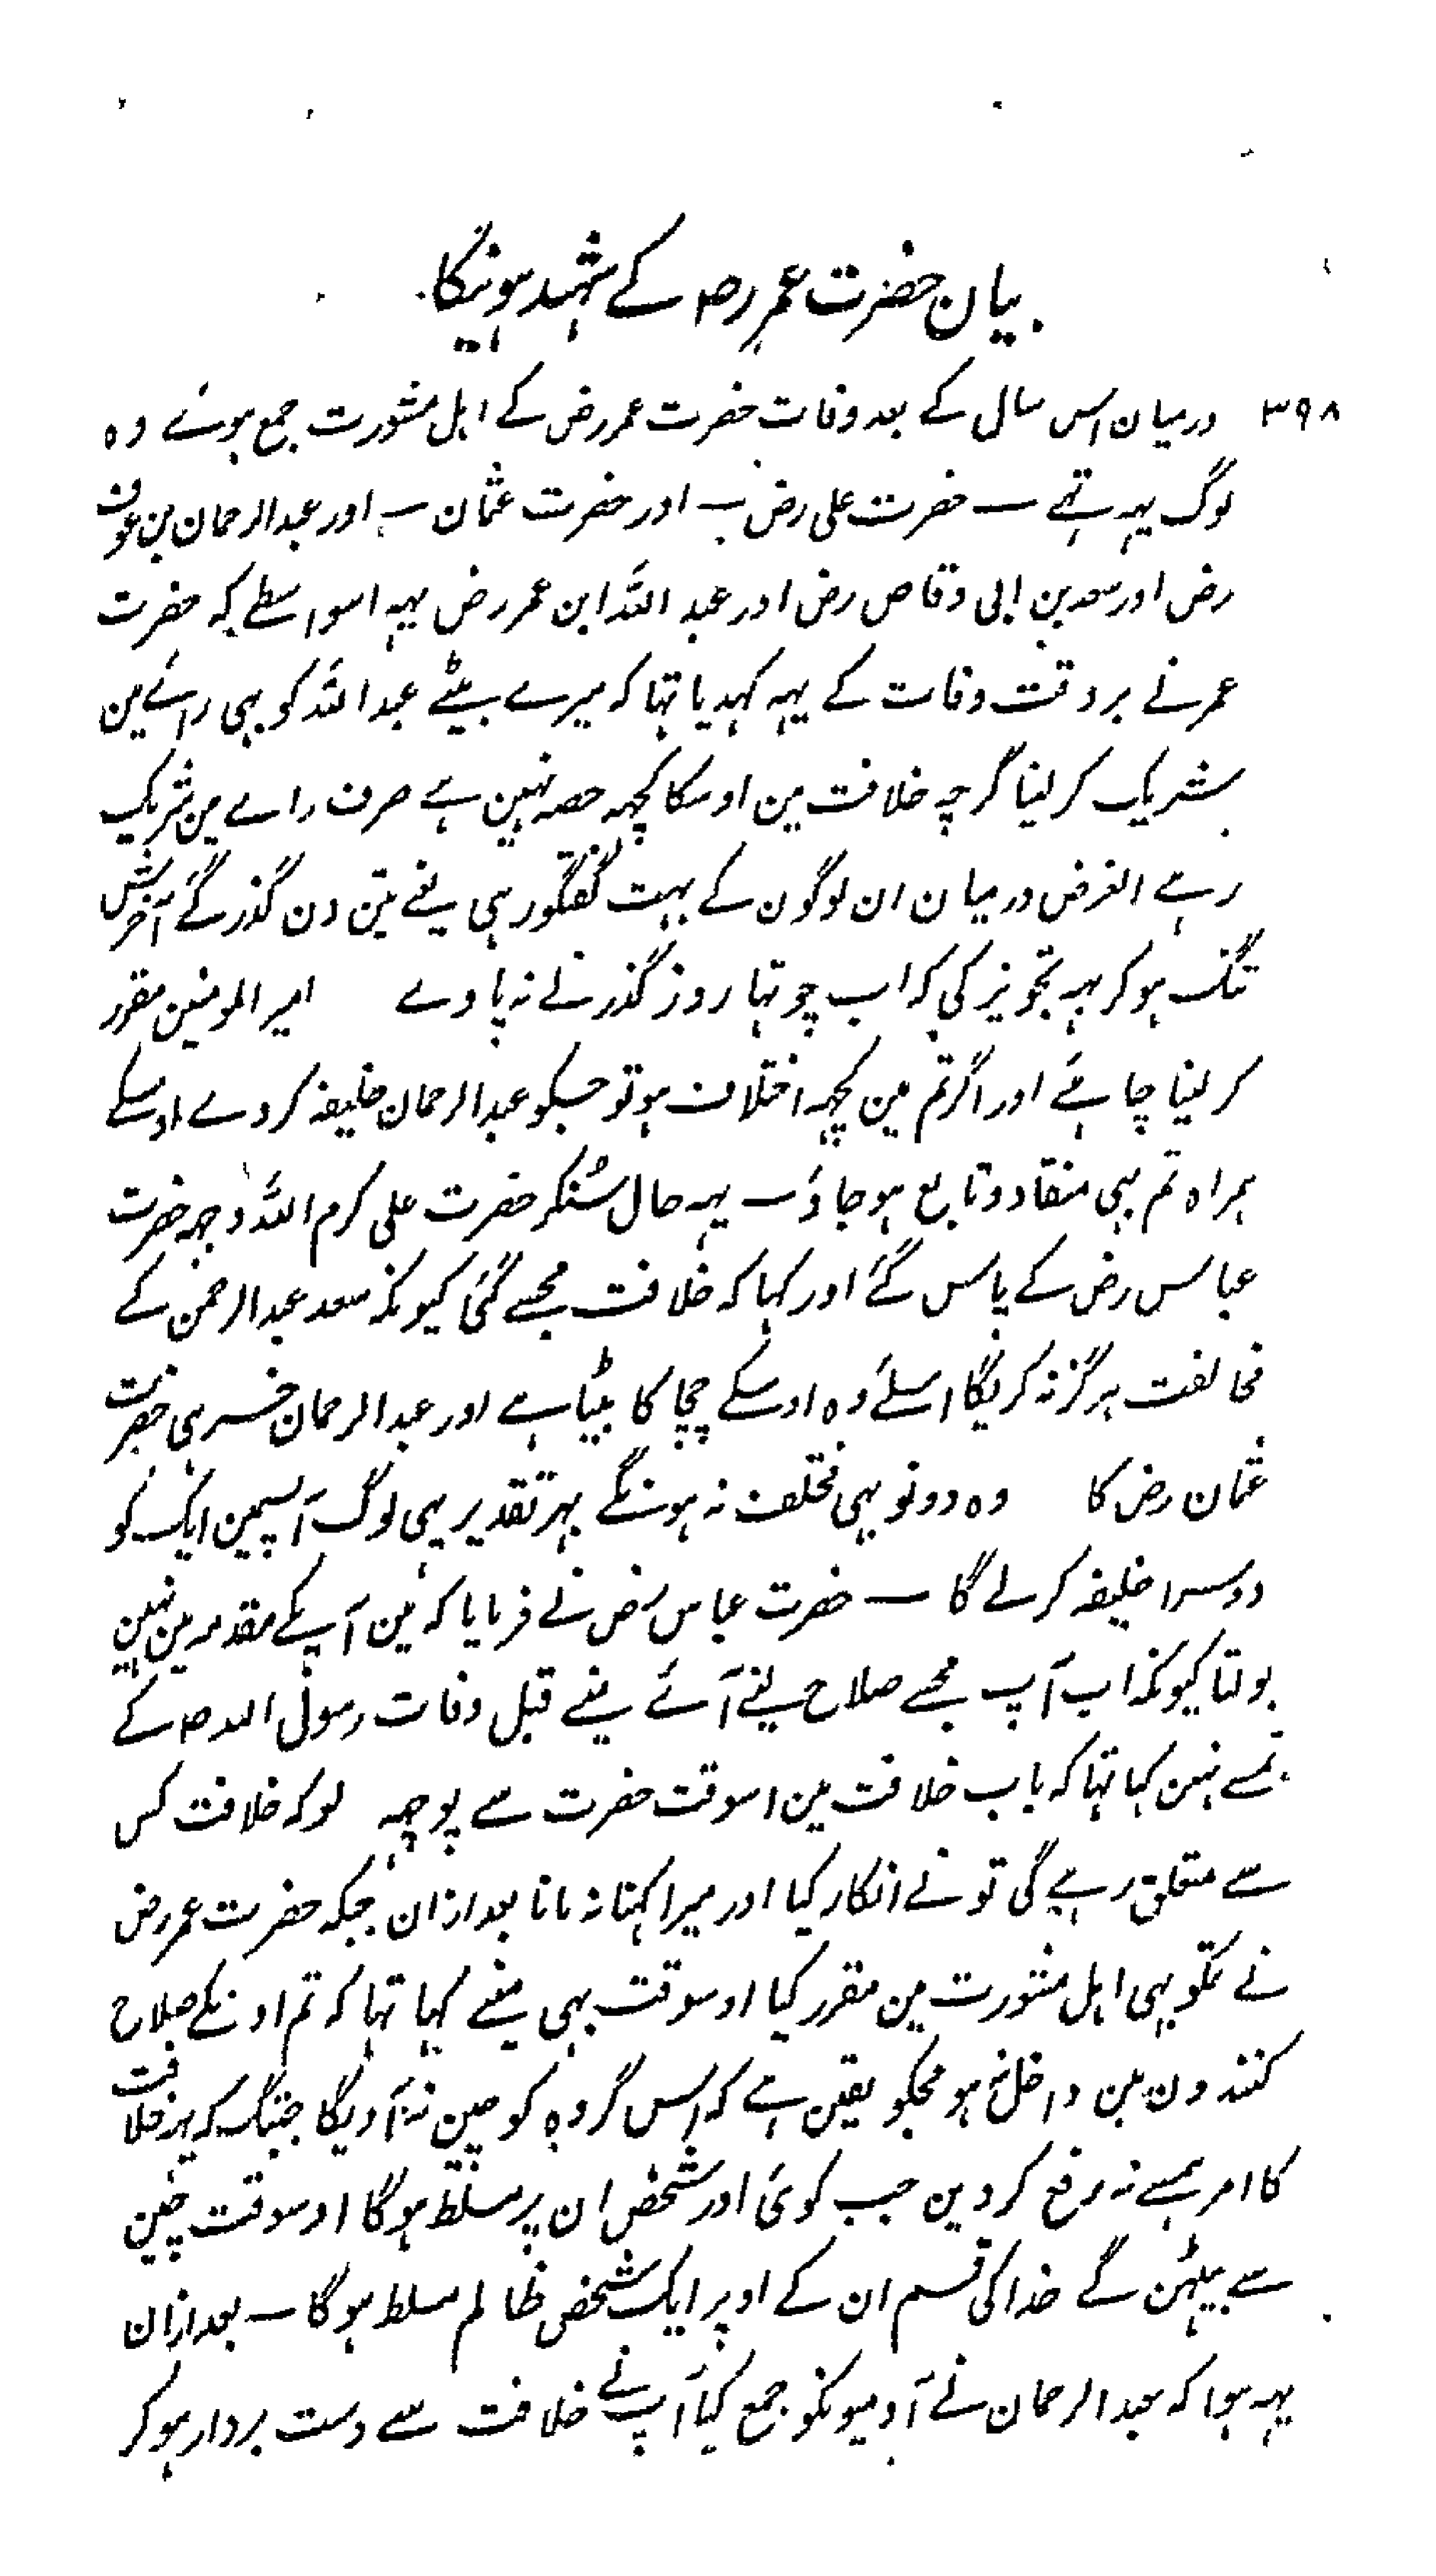 بیان حضرت عمر رضہ کے شہید ہونیکا
۳۹۸ درمیان اس سال کے بعد وفات حضرت عمر رض کے اہل مشورت جمع ہوئے وہ
لوگ یہہ تہے ــ حضرت علی رض ــ اور حضرت عثمان ــ اور عبدالرحمان بن عوف
رض اور سعد بن ابی وقاص رض اور عبد اللہ ابن عمر رض یہہ اسواسطے کہ حضرت
عمر نے بروقت وفات کے یہہ کہدیا تہا کہ میرے بیٹے عبد اللہ کو بہی رائے مین
شریک کر لینا گرچہ خلافت مین اوسکا کچہہ حصہ نہین ہے صرف راے مین شریک
رہے الغرض درمیان ان لوگون کے بہت گفتگو رہی یعنے تین دن گذر گئے آخرش
تنگ ہو کر یہہ تجویز کی کہ اب چوتہا روز گذرنے نہ پاوے امیر المومنین مقرر
کر لینا چاہئے اور اگر تم مین کچہہ اختلاف ہو تو جسکو عبدالرحمان خلیفہ کردے اوسکے
ہمراہ تم بہی منقاد و تابع ہو جاؤ ــ یہہ حال سُنکر حضرت علی کرم اللہ وجہہ حضرت
عباس رض کے پاس گئے اور کہا کہ خلافت مجہسے گئی کیونکہ سعد عبدالرحمن کے
مخالفت ہرگز نہ کریگا اسلئے وہ اوسکے چچا کا بیٹا ہے اور عبدالرحمان خسر ہی حضرت
عثمان رض کا وہ دونو بہی مختلف نہ ہونگے بہر تقدیر یہی لوگ آپسمین ایک کو
دوسرا خلیفہ کرلے گا ــ حضرت عباس رض نے فرمایا کہ مین آپکے مقدمہ مین نہین
بولتا کیونکہ اب آپ مجہسے صلاح لینے آئے مینے قبل وفات رسول اللہ صہ کے
تمسے نہین کہا تہا کہ باب خلافت مین اسوقت حضرت سے پوچہہ لو کہ خلافت کس
سے متعلق رہے گی تو نے انکار کیا اور میرا کہنا نہ مانا بعد ازان جبکہ حضرت عمر رض
نے تمکو بہی اہل مشورت مین مقرر کیا اوسوقت بہی مینے کہا تہا کہ تم اونکے صلاح
کنندون مین داخل نہو مجکو یقین ہے کہ اس گروہ کو چین نہ آویگا جبتک کہ یہہ خلافت
کا امر ہمسے نہ رفع کردین جب کوئی اور شخص ان پر مسلط ہوگا اوسوقت چین
سے بیٹہین گے خدا کی قسم ان کے اوپر ایک شخص ظالم مسلط ہوگا ــ بعد ازان
یہہ ہوا کہ عبدالرحمان نے آدمیونکو جمع کیا آپ نے خلافت سے دست بردار ہوکر